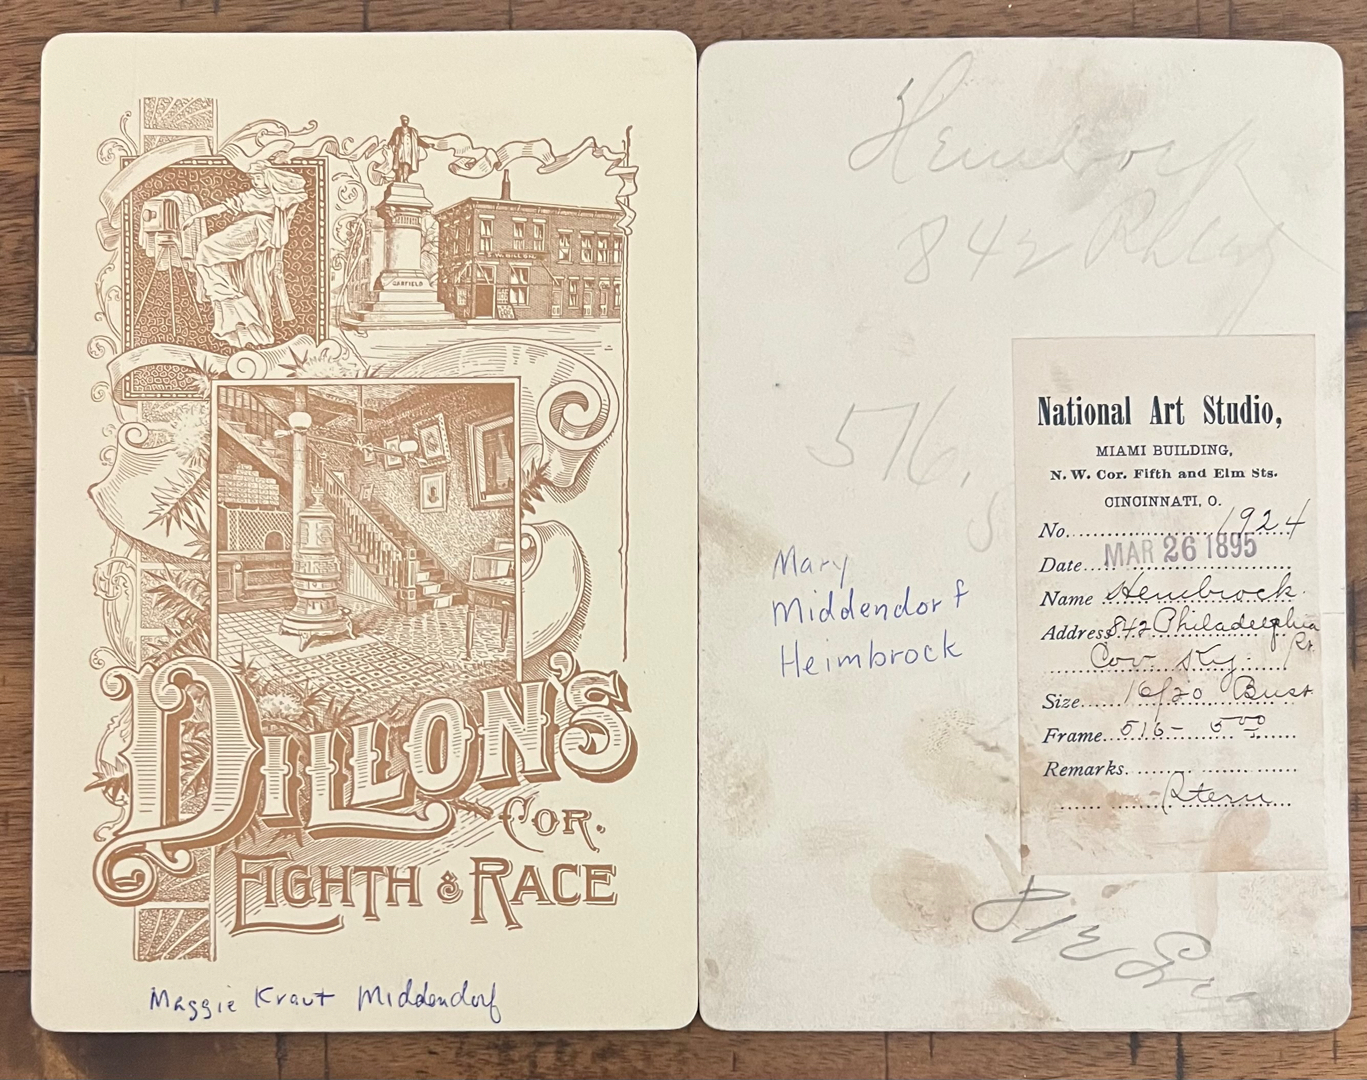 GARFIELD
DILLON'S
COR.
EIGHTH & RACE
Maggie Kraut Middendorf
842
576.
Mary
Middendorf
Heimbrock
National Art Studio,
MIAMI BUILDING,
N. W. Cor. Fifth and Elm Sts.
CINCINNATI, O.
No. 1924
Date MAR 26 1895
Name Heimbrock
Address 842 Philadelphia
Cov. Ky.
Size 16/20 Bust
Frame 516- 5.00
Remarks.